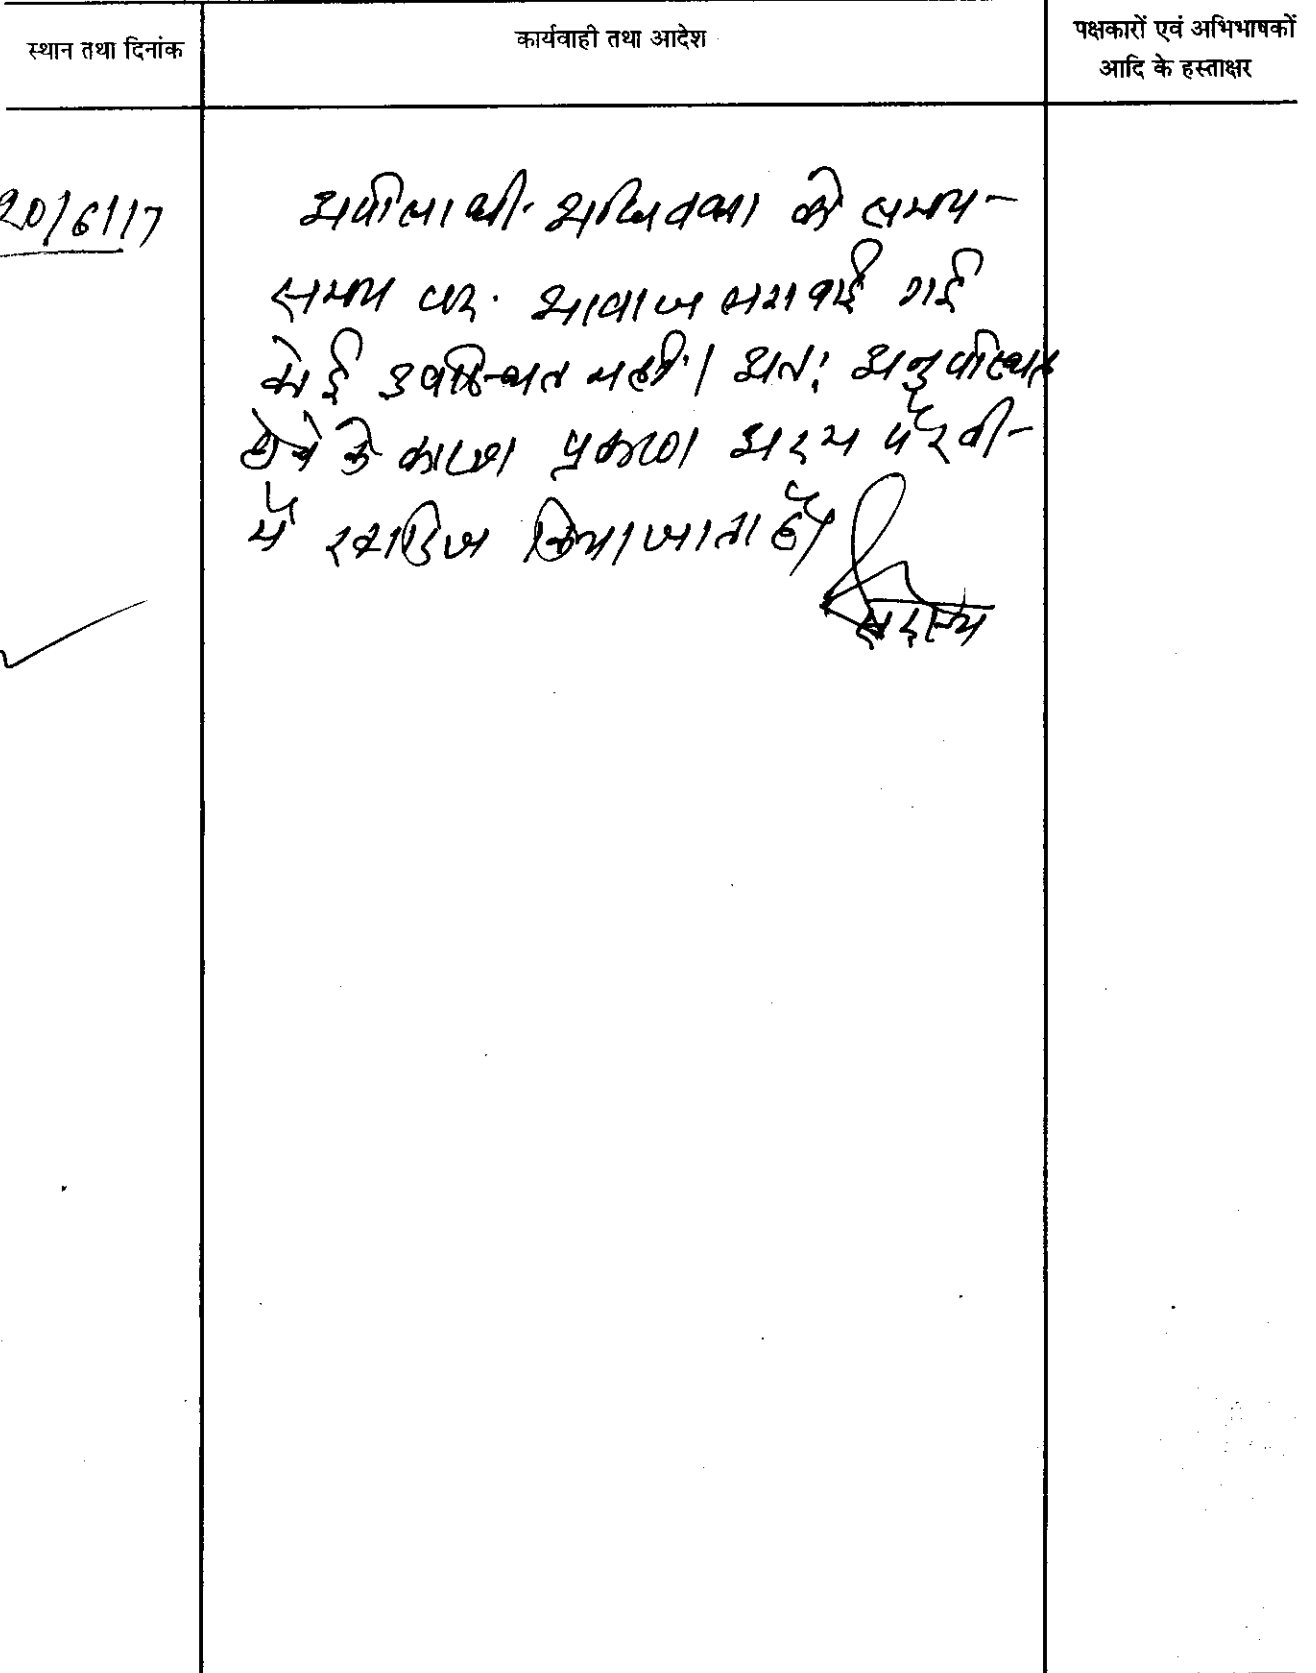 स्थान तथा दिनांक
कार्यवाही तथा आदेश
पक्षकारों एवं अभिभाषकों
आदि के हस्ताक्षर
20/6/17
अपीलार्थी अधिवक्ता को समय-
समय पर आवाज लगवाई गई
कोई उपस्थित नहीं। अतः अनुपस्थित
होने के कारण प्रकरण अदम पैरवी-
में खारिज किया जाता है।
सदस्य